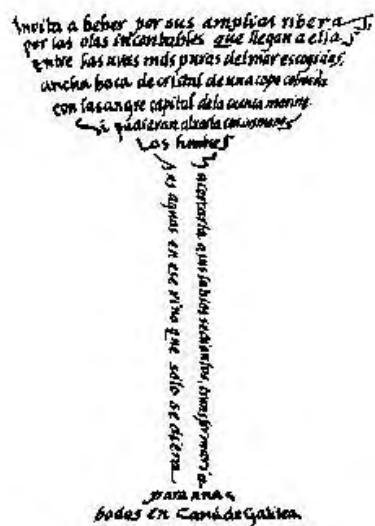 Invita a beber por sus amplias riberas,
por las olas incontables que llegan a ella,
entre las uvas más puras del mar escogidas,
ancha boca de cristal de una copa colmada
con la sangre capital de la cuenca marina.
Si pudieran alzarla con sus manos
los hombres
y acercarla a sus labios sedientos, transformaría
sus aguas en ese vino que sólo se diera
para unas
bodas en Caná de Galilea.